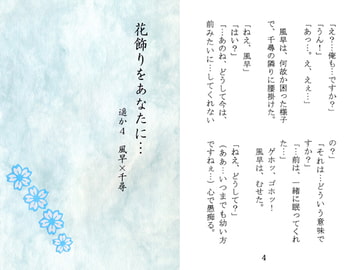 花飾りをあなたに…
遥か4 風早×千尋
「え?…俺も…ですか?」
「うん!」
「あっ…。え、ええ…」
風早は、何故か困った様子
で、千尋の隣りに腰掛けた。
「ねえ、風早」
「はい?」
「…あのね、どうして今は、
前みたいに…してくれない
の?」
「それは…どういう意味で
すか?」
「…前は、一緒に眠ってくれ
た…」
ゲホッ、ゴホッ!
風早は、むせた。
「ねえ、どうして?」
(ああ…いつまでも幼い方
ですねぇ…)心で愚痴る。
4